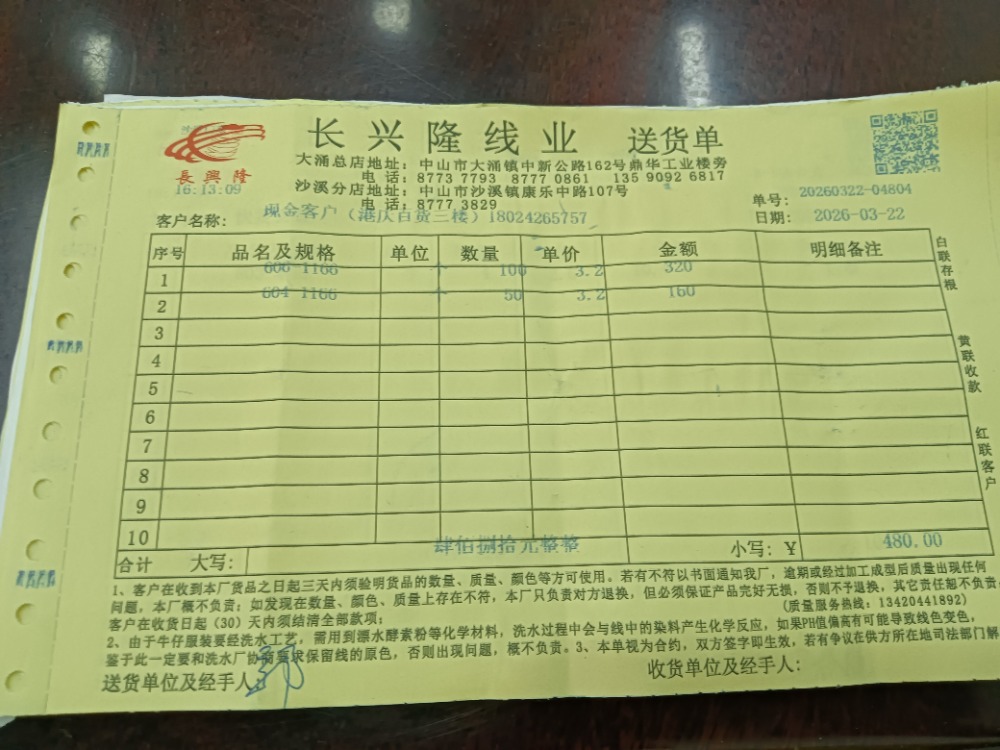 长兴隆线业 送货单
長興隆
16:13:09
大涌总店地址：中山市大涌镇中新公路162号鼎华工业楼旁
电话：8773 7793 8777 0861 135 9092 6817
沙溪分店地址：中山市沙溪镇康乐中路107号
电话：8777 3829
单号：20260322-04804
客户名称：现金客户（港庆百货三楼）18024265757
日期：2026-03-22
序号 品名及规格 单位 数量 单价 金额 明细备注
1 606 1166 个 100 3.2 320
2 604 1166 个 50 3.2 160
3
4
5
6
7
8
9
10
合计 大写：肆佰捌拾元整整 小写：￥ 480.00
白联存根
黄联收款
红联客户
1、客户在收到本厂货品之日起三天内须验明货品的数量、质量、颜色等方可使用。若有不符以书面通知我厂，逾期或经过加工成型后质量出现任何
问题，本厂概不负责；如发现在数量、颜色、质量上存在不符，本厂只负责对方退换，但必须保证产品完好无损，否则不予退换，其它责任恕不负责
客户在收货日起（30）天内须结清全部款项； （质量服务热线：13420441892）
2、由于牛仔服装要经洗水工艺，需用到漂水酵素粉等化学材料，洗水过程中会与线中的染料产生化学反应，如果PH值偏高有可能导致线色变色，
鉴于此一定要和洗水厂协商要求保留线的原色，否则出现问题，概不负责。3、本单视为合约，双方签字即生效，若有争议在供方所在地司法部门解
送货单位及经手人：
收货单位及经手人：